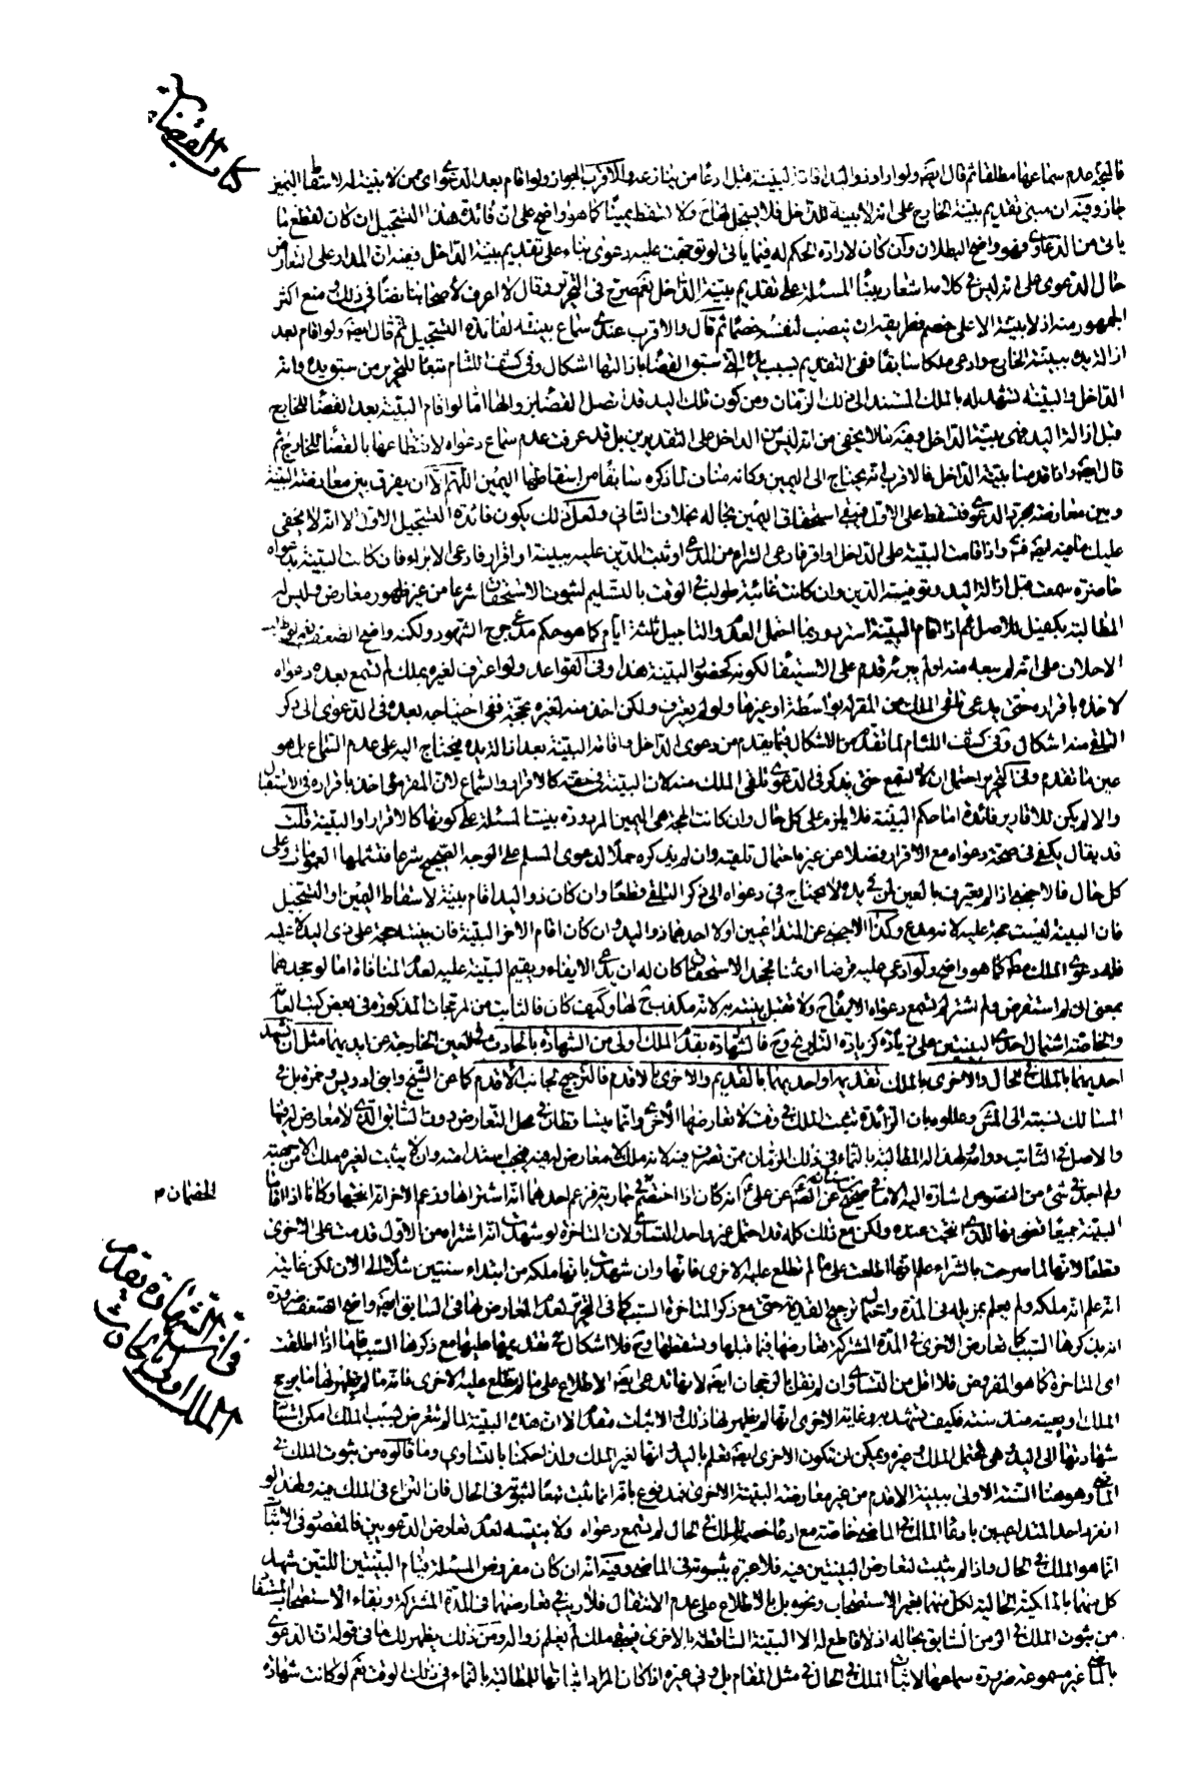 كتاب القضاء
فالمتجه عدم سماعها مطلقا ثم قال ايضا ولو اراد ذو اليد اقامة البينة قبل ادعاء من ينازعه فالاقرب الجواز ولو اقام بعد الدعوى ممن لا بينة له لاسقاط اليمين
جاز وفيه ان مبنى تقديم بينة الخارج على انه لا بينة للداخل فلا يسجل لها ح ولا تسقط يمينا كما هو واضح على ان فائدة هذا التسجيل ان كان لقطع ما
يأتي من الدعاوي فهو واضح البطلان وان كان لارادة الحكم له فيما يأتي لو توجهت عليه دعوى بناء على تقديم بينة الداخل ففيه ان المدار على التعارض
حال الدعوى على انه ليس في كلامه اشعار ببناء المسئلة على تقديم بينة الداخل نعم صرح في التحرير وقال لا اعرف لاصحابنا نصا في ذلك ومنع اكثر
الجمهور منه اذ لا بينة الا على خصم فطريقه ان ينصب لنفسه خصما ثم قال والاقرب عندي سماع بينته لفائدة التسجيل ثم قال ايضا ولو اقام بعد
ازالة يده ببينة الخارج وادعى ملكا سابقا ففي التقديم بسبب يده التي سبق القضاء بازالتها اشكال وفي كشف اللثام تبعا للتحرير من سبق يده وانه
الداخل والبينة تشهد له بالملك المستند الى ذلك الزمان ومن كون تلك اليد قد اتصل القضاء بزوالها اما لو اقام البينة بعد القضاء للخارج
قبل ازالة اليد فهي بينة الداخل وفيه ما لا يخفى من انه ليس من الداخل على التقديرين بل قد عرفت عدم سماع دعواه لانقطاعها بالقضاء للخارج ثم
قال ايضا واذا قدمنا بينة الداخل فالاقرب انه يحتاج الى اليمين وكانه مناف لما ذكره سابقا من اسقاطها اليمين اللهم الا ان يفرق بين معارضة البينة
وبين معارضة مجرد الدعوى فتسقط على الاول فيبقى استحقاق اليمين بحاله بخلاف الثاني ولعل ذلك يكون فائدة التسجيل الاول الا انه لا يخفى
عليك ما فيه ايضا واذا قامت البينة على الداخل او اقر فادعى الشراء من المدعي او ثبت الدين عليه ببينة او اقرار فادعى الابراء فان كانت البينة بدعواه
حاضرة سمعت قبل ازالة اليد وتوفية الدين وان كانت غائبة طولب في الوقت بالتسليم لثبوت الاستحقاق شرعا من غير ظهور معارض وليس له
المطالبة بكفيل للاصل ثم اذا اقام البينة استرد وربما احتمل العدم والتاجيل ثلثة ايام كما هو حكم مدعي جرح الشهود ولكنه واضح الضعف نعم لو طلب
الاحلاف على انه لم يبعه منه او لم يبرئه قدم على الاستيفاء لكونه كحضور البينة هذا وفي القواعد ولو اعترف لغيره بملك لم تسمع بعده دعواه
لاخذه باقراره حتى يدعي تلقي الملك من المقر له بواسطة او غيرها ولو لم يعترف ولكن اخذ منه لغيره بحجة ففي احتياجه بعده في الدعوى الى ذكر
التلقي منه اشكال وفي كشف اللثام لما تقدم من الاشكال فيما تقدم من دعوى الداخل واقامة البينة بعد ازالة يده فيحتاج اليه على عدم السماع بل هو
عين ما تقدم وفي التحرير احتمل ان لا تسمع حتى يذكر في الدعوى تلقي الملك منه لان البينة في حقه كالاقرار والسماع لان المقر مؤاخذ باقراره في الاستقبال
والا لم يكن للاقارير فائدة اما حكم البينة فلا يلزم على كل حال وان كانت الحجة هي اليمين المردودة بنيت المسئلة على كونها كالاقرار او البينة قلت
قد يقال يكفي في صحة دعواه مع الاقرار فضلا عن غيره احتمال تلقيه وان لم يذكره حملا لدعوى المسلم على الوجه الصحيح شرعا فتشملها العمومات وعلى
كل حال فالاجنبي اذا لم يعترف بالعين لمن في يده لا يحتاج في دعواه الى ذكر التلقي قطعا وان كان ذو اليد اقام بينة لاسقاط اليمين او التسجيل
فان البينة ليست حجة عليه لانه مدع وكذا الاجنبي عن المتداعيين او لاحدهما ذو اليد وان كان اقام الاخر البينة فان بينته حجة على ذي اليد لا عليه
فله دعوى الملك مطلقا كما هو واضح ولو ادعي عليه قرضا او ثمنا فجحد الاستحقاق كان له ان يدعي الايفاء ويقيم البينة عليه لعدم المنافاة اما لو جحدهما
بمعنى انه لم يستقرض ولم يشتر لم تسمع دعواه الايفاء ح ولا تقبل بينته به لانه مكذب لها وكيف كان فالثابت من المرجحات المذكورة في بعض كتب العامة
والخاصة اشتمال احدى البينتين على زيادة كزيادة التاريخ وح فالشهادة بقدم الملك اولى من الشهادة بالحادث في العين الخارجة عن ايديهما مثل ان تشهد
احديهما بالملك في الحال والاخرى بالملك بقديمه او احديهما بالقديم والاخرى بالاقدم فالترجيح لجانب الاقدم كما عن الشيخ وابني ادريس وحمزة بل في
المسالك نسبته الى المشهور وعللوه بان الزائدة تثبت الملك في وقت لا تعارضها الاخرى وانما يتساقطان في محل التعارض دون السابق الذي لا معارض له فيها
والاصل في الثابت دوامه ولهذا له المطالبة بالنماء في ذلك الزمان ممن تصرف فيه لانه ملك لا معارض له فيه فيجب استدامته وان لا يثبت لغيره ملك الا من جهته
ولم اجد في شيء من النصوص اشارة اليه الا ما في صحيح عبد الله بن سنان عن الصادق عن علي انه كان اذا اختصم الخصمان في جارية فزعم احدهما انه اشتراها وزعم الاخر انه انتجها وكانا اذا اقاما
البينة جميعا قضى بها للذي انتجت عنده ولكن مع ذلك كله قد احتمل غير واحد التساوي لان المتاخرة لو شهدت انه اشتراه من الاول قدمت على الاخرى
قطعا لانها لما صرحت بالشراء علم انها اطلعت على ما لم تطلع عليه الاخرى فانها وان شهدت بانها ملكه من ابتداء سنتين مثلا الى الان لكن غايته
انه علم انه ملكه ولم يعلم بمزيله في المدة واحتمال ترجيح القديمة حتى مع ذكر المتاخرة السبب كما في التحرير لعدم المعارض لها في السابق ايضا واضح الضعف ضرورة
انه بذكرها السبب كما تعارض الاخرى في المدة المشتركة تعارضها فيما قبلها وتسقطها وح فلا اشكال في تقديمها عليها مع ذكرها السبب فاما اذا اطلقت
اي المتاخرة كما هو المفروض فلا اقل من التساوي وان لم نقل بالرجحان ايضا لانها تدعي ايضا الاطلاع على ما لم تطلع عليه الاخرى فانه ما لم يظهر لها ما يوجب
الملك او يعينه منذ سنة فكيف تشهد به وغاية الاخرى انها لم يظهر لها ذلك والاثبات مقدم الا ان هذه البينة لما لم تتعرض لسبب الملك امكن استناد
شهادتها الى اليد وهي تحتمل الملك وغيره ويمكن ان تكون الاخرى ايضا تعلم باليد وانها لغير الملك ولذا حكمنا بالتساوي وما قالوه من ثبوت الملك في
الماضي وهو هنا السنة الاولى ببينة الاقدم من غير معارضة البينة الاخرى فمدفوع بانه انما ثبت تبعا لثبوته في الحال فان النزاع في الملك فيه ولهذا لو
انفرد احد المتداعيين بادعاء الملك في الماضي خاصة مع ادعاء خصمه الملك في الحال لم تسمع دعواه ولا بينته لعدم تعارض الدعويين فالمقصود في الاثبات
انما هو الملك في الحال واذا لم يثبت لتعارض البينتين فيه فلا عبرة بثبوته في الماضي وفيه انه ان كان مفروض المسئلة قيام البينتين اللتين تشهد
كل منهما بالملكية الحالية لكل منهما بغير الاستصحاب ونحوه بل بالاطلاع على عدم الانتقال فلا ريب في تعارضهما في المدة المشتركة وبقاء الاستصحاب المستفاد
من ثبوت الملك في الزمن السابق بحاله اذ لا قاطع له الا البينة الساقطة بالاخرى فيبقى ملك لم يعلم زواله ومن ذلك يظهر لك ما في قوله ان الدعوى
بالماضي غير مسموعة ضرورة سماعها لاثبات الملك في الحال في مثل المقام بل وفي غيره اذا كان المراد اثباتها للمطالبة بالنماء في ذلك الوقت نعم لو كانت شهادة
الخصمان م
في ان الشهادة بقدم
الملك اولى من الحادث